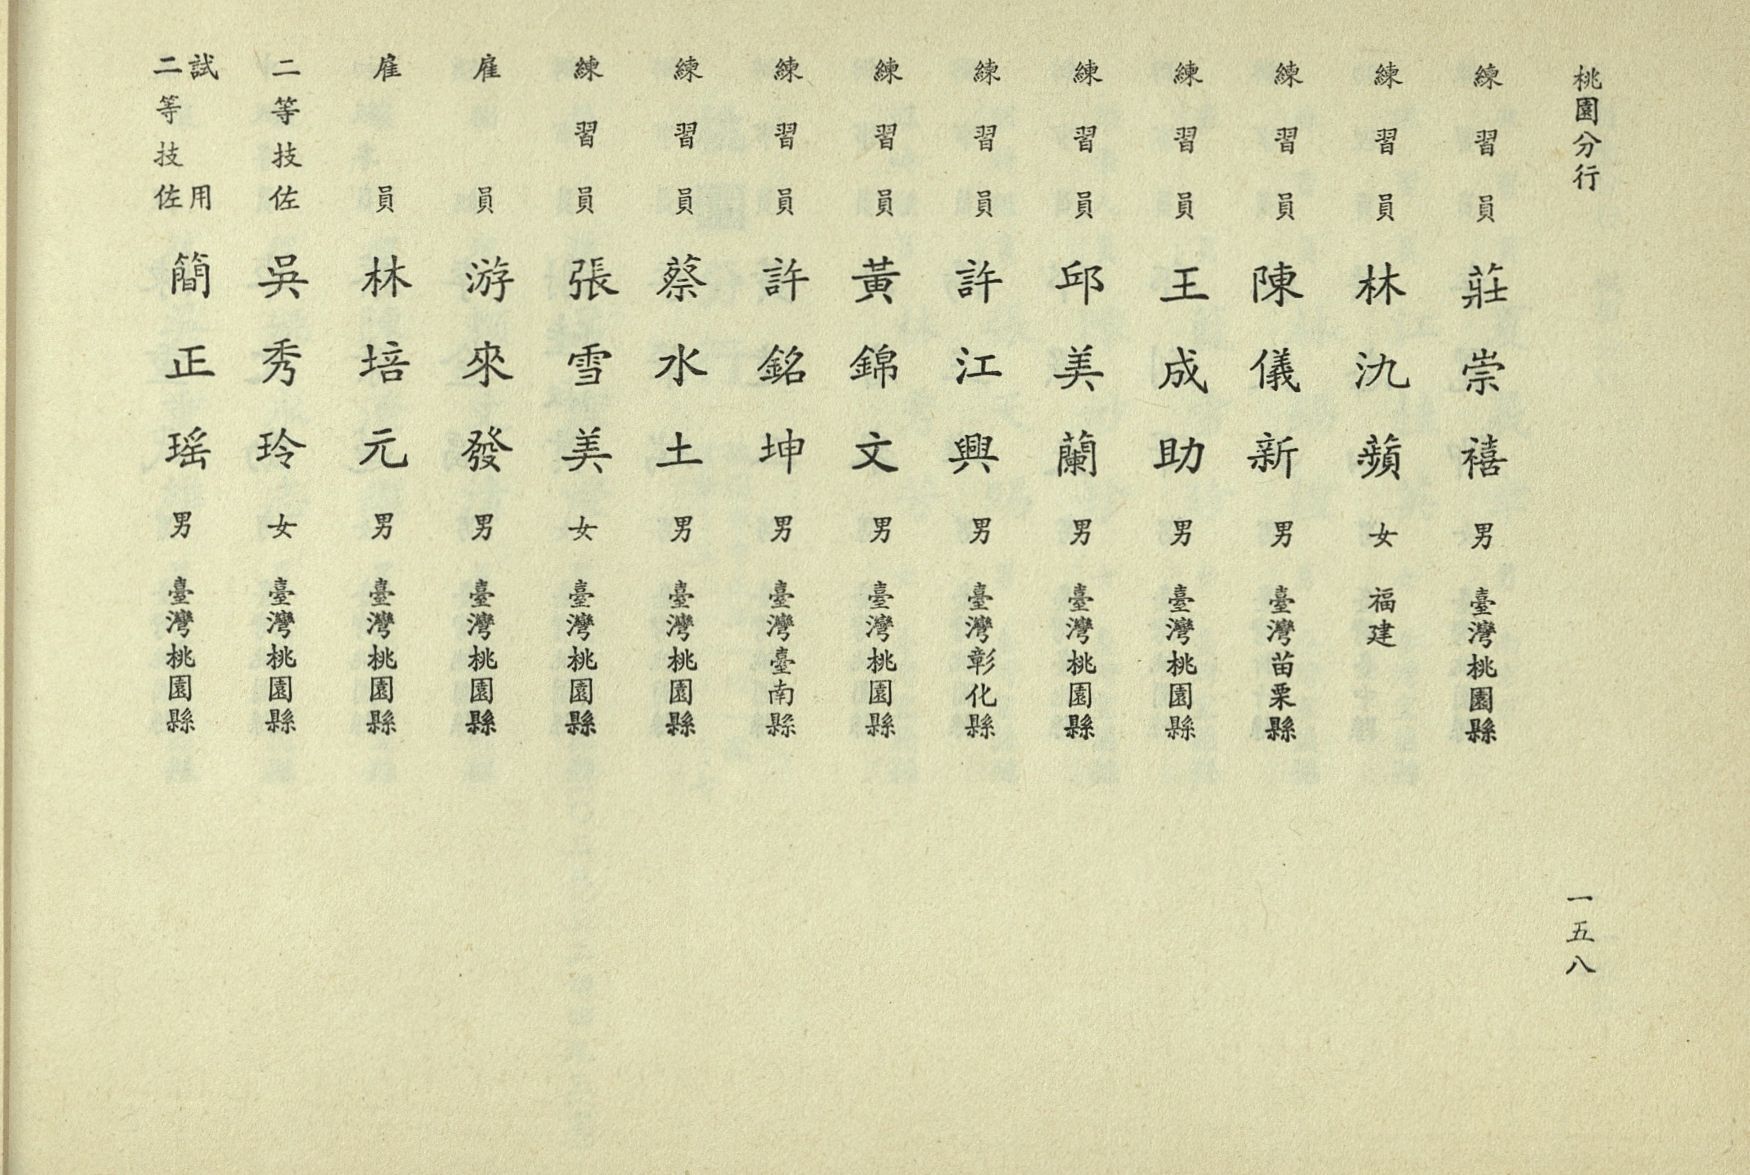 桃園分行 一五八
練習員 莊崇禧 男 臺灣桃園縣
練習員 林氿蘋 女 福建
練習員 陳儀新 男 臺灣苗栗縣
練習員 王成助 男 臺灣桃園縣
練習員 邱美蘭 男 臺灣桃園縣
練習員 許江興 男 臺灣彰化縣
練習員 黃錦文 男 臺灣桃園縣
練習員 許銘坤 男 臺灣臺南縣
練習員 蔡水土 男 臺灣桃園縣
練習員 張雪美 女 臺灣桃園縣
雇員 游來發 男 臺灣桃園縣
雇員 林培元 男 臺灣桃園縣
二等技佐 吳秀玲 女 臺灣桃園縣
試用二等技佐 簡正瑤 男 臺灣桃園縣